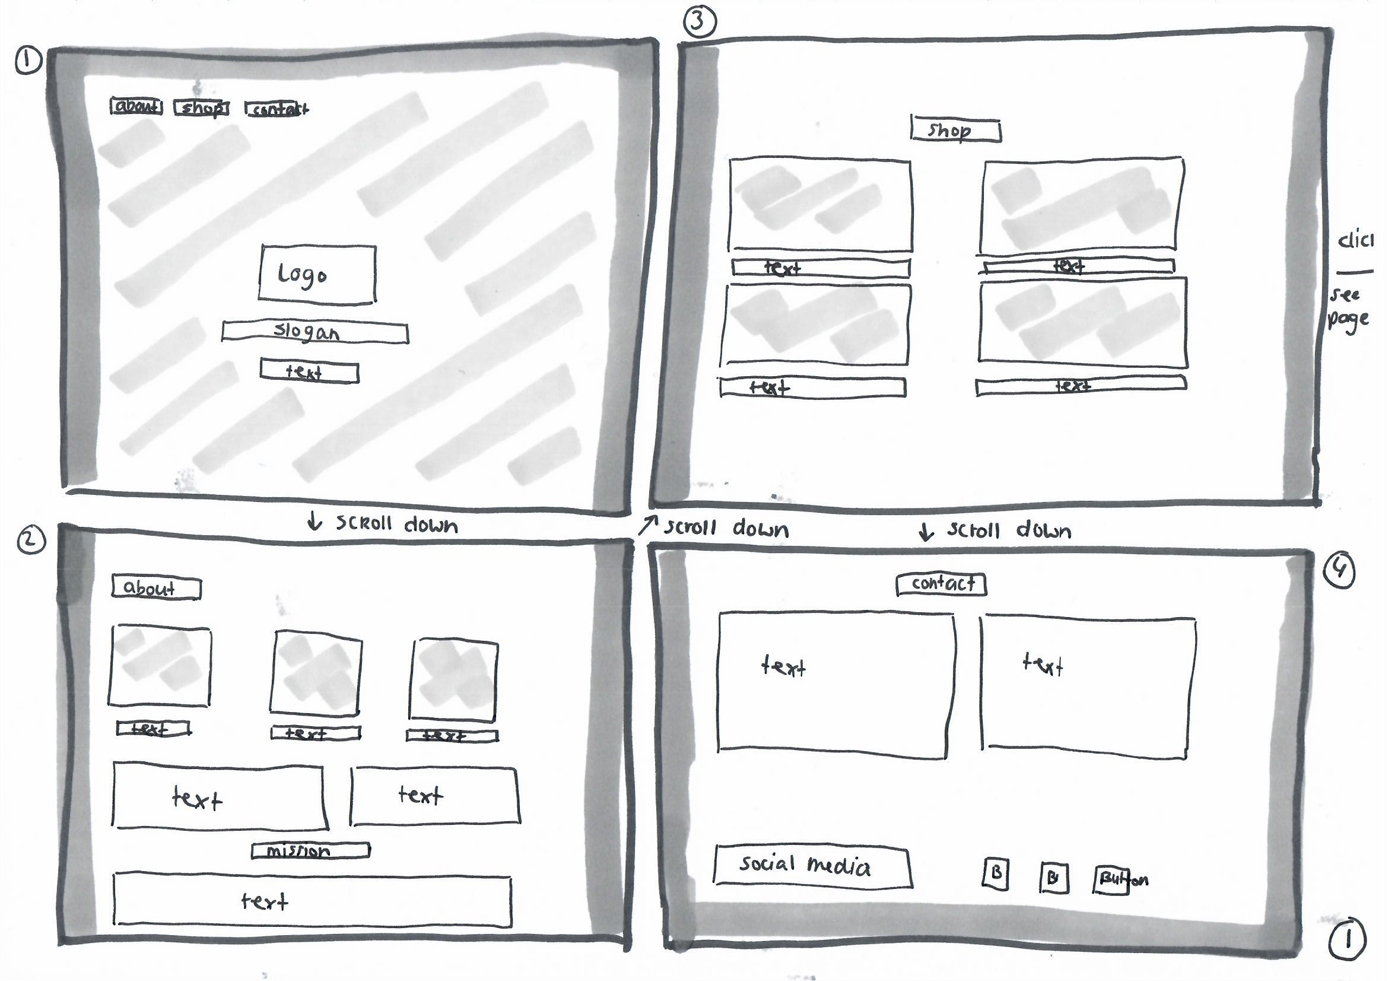 1
about shop contact
Logo
slogan
text
↓ scroll down
2
about
text text text
text text
mission
text
↗ scroll down
3
shop
text text
text text
see
page
↓ scroll down
4
contact
text text
social media B B Button
1